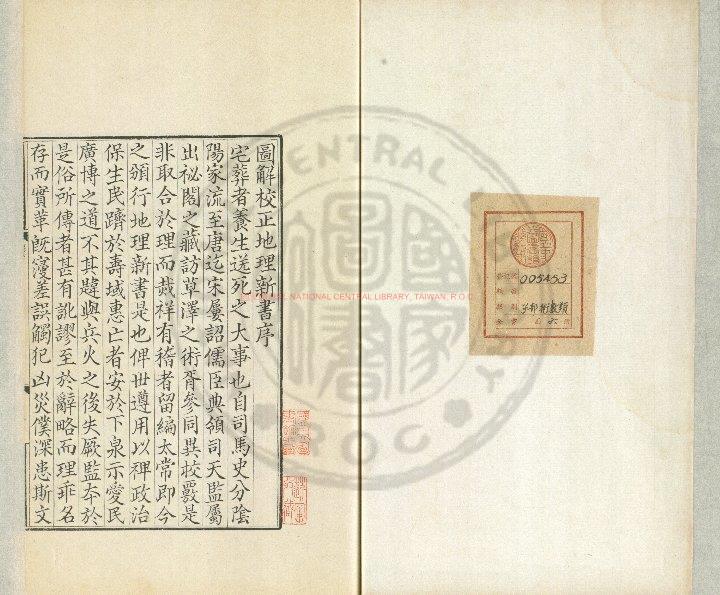 圖解校正地理新書序
宅葬者養生送死之大事也自司馬史分陰
陽家流至唐迄宋屢詔儒臣典領司天監屬
出祕閣之藏訪草澤之術胥參同異挍覈是
非取合於理而災祥有稽者留編太常即今
之頒行地理新書是也俾世遵用以稗政治
保生民躋於壽域惠亡者安於下泉示愛民
廣博之道不其韙與兵火之後失厥監本於
是俗所傳者甚有訛謬至於辭略而理乖名
存而實革旣寖差誤觸犯凶災僕深患斯文
005453
子部術數類
NATIONAL CENTRAL LIBRARY, TAIWAN, R.O.C.